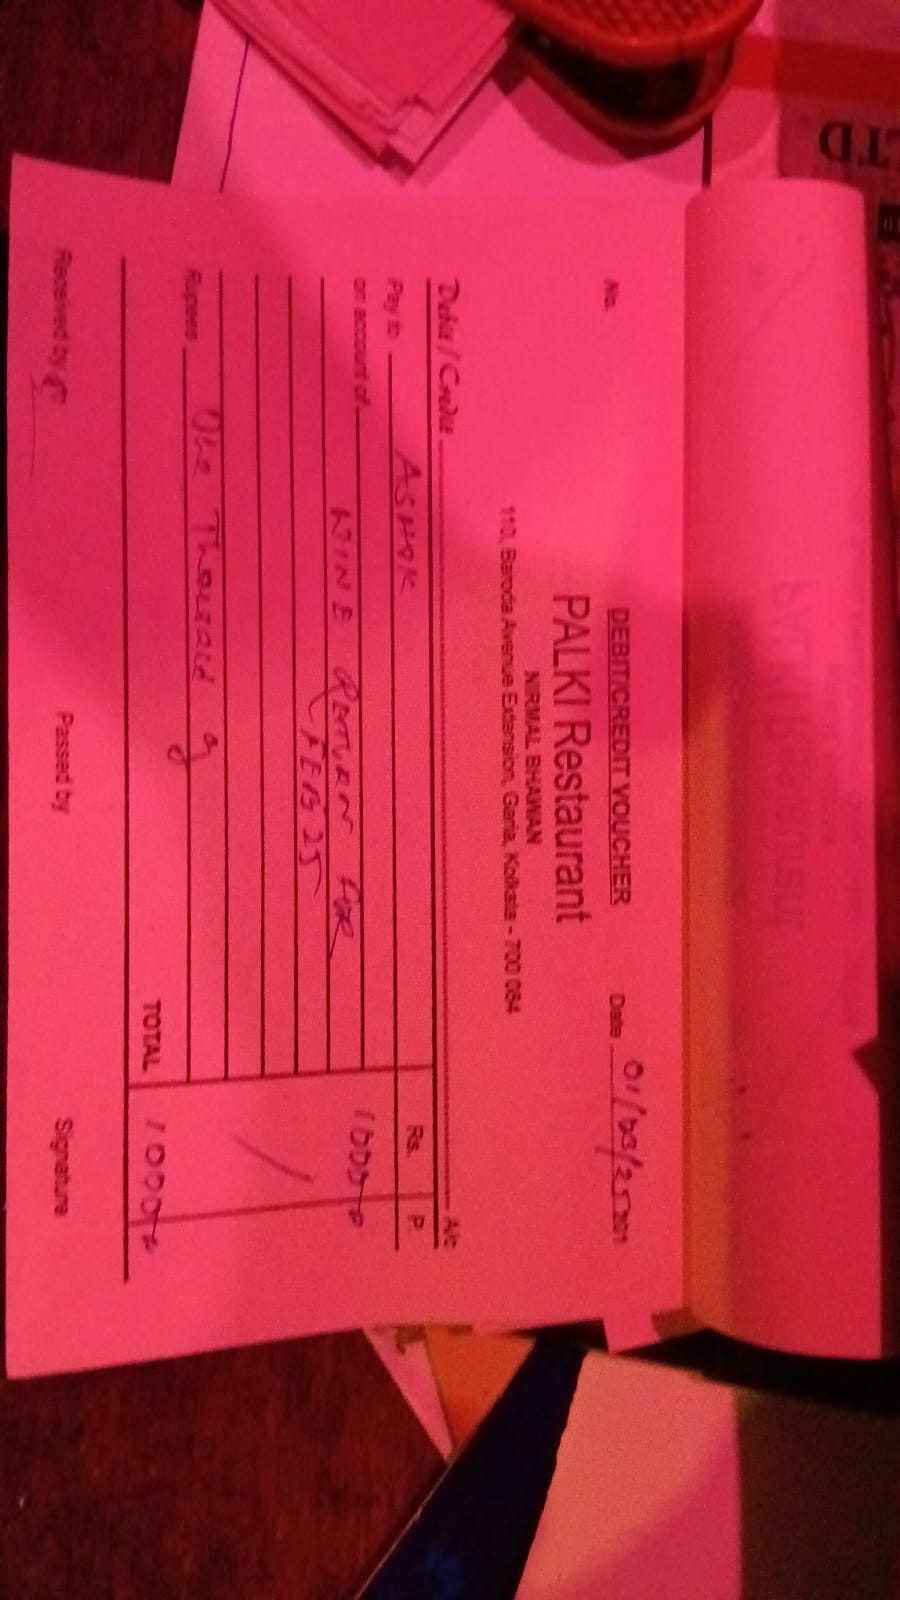 LTD
DEBIT/CREDIT VOUCHER
No.
Date 01/03/25 201
PALKI Restaurant
NIRMAL BHAWAN
110, Baroda Avenue Extension, Garia, Kolkata - 700 084
Debit / Credit A/c
Pay to ASHOK Rs. P.
on account of WINE RETURN FOR 1000
FEB 25
Rupees One Thousand
TOTAL 1000
Received by Passed by Signature